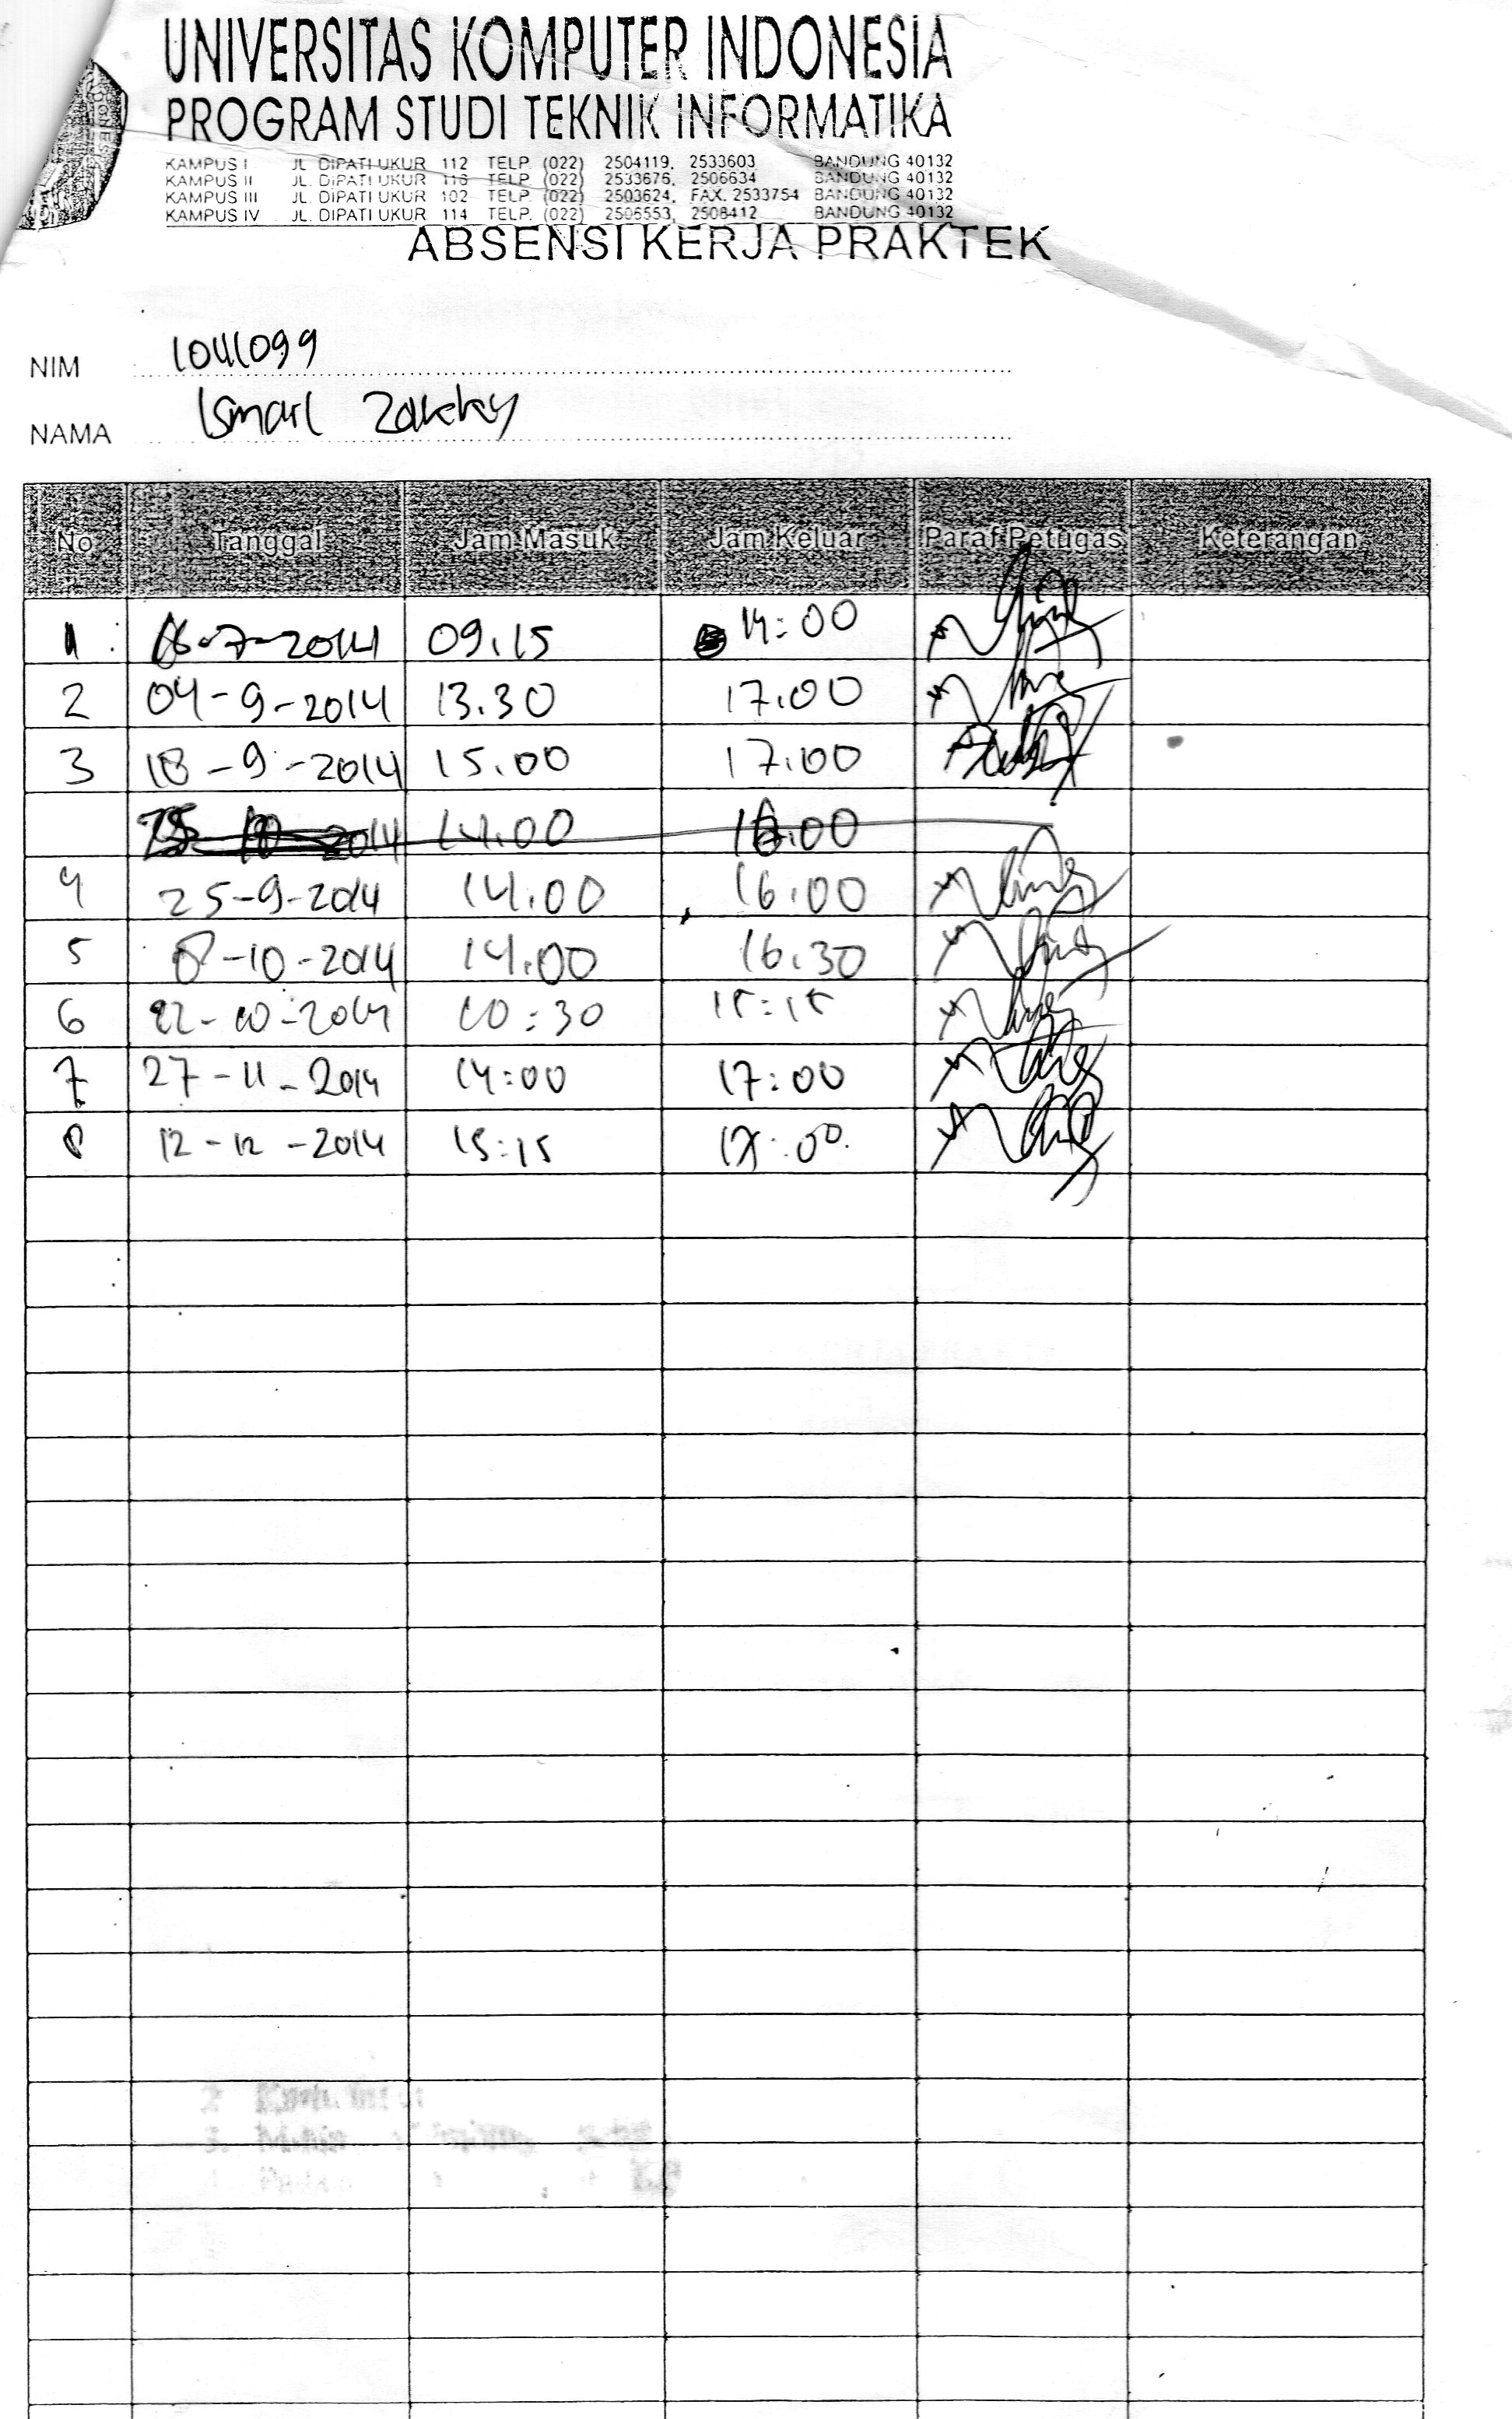 UNIVERSITAS KOMPUTER INDONESIA
PROGRAM STUDI TEKNIK INFORMATIKA
KAMPUS I JL. DIPATI UKUR 112 TELP. (022) 2504119, 2533603 BANDUNG 40132
KAMPUS II JL. DIPATI UKUR 116 TELP. (022) 2533676, 2506634 BANDUNG 40132
KAMPUS III JL. DIPATI UKUR 102 TELP. (022) 2503624, FAX. 2533754 BANDUNG 40132
KAMPUS IV JL. DIPATI UKUR 114 TELP. (022) 2506553, 2508412 BANDUNG 40132
ABSENSI KERJA PRAKTEK
NIM
NAMA Ismail Zakky
No Tanggal Jam Masuk Jam Keluar Paraf Petugas Keterangan
1 16-7-2014 09.15 14:00
2 04-9-2014 13.30 17.00
3 18-9-2014 15.00 17.00
2014 14.00 16.00
4 25-9-2014 14.00 16.00
5 8-10-2014 14.00 16.30
6 22-10-2014 10:30 15:15
7 27-11-2014 14:00 17:00
8 12-12-2014 15:15 :00